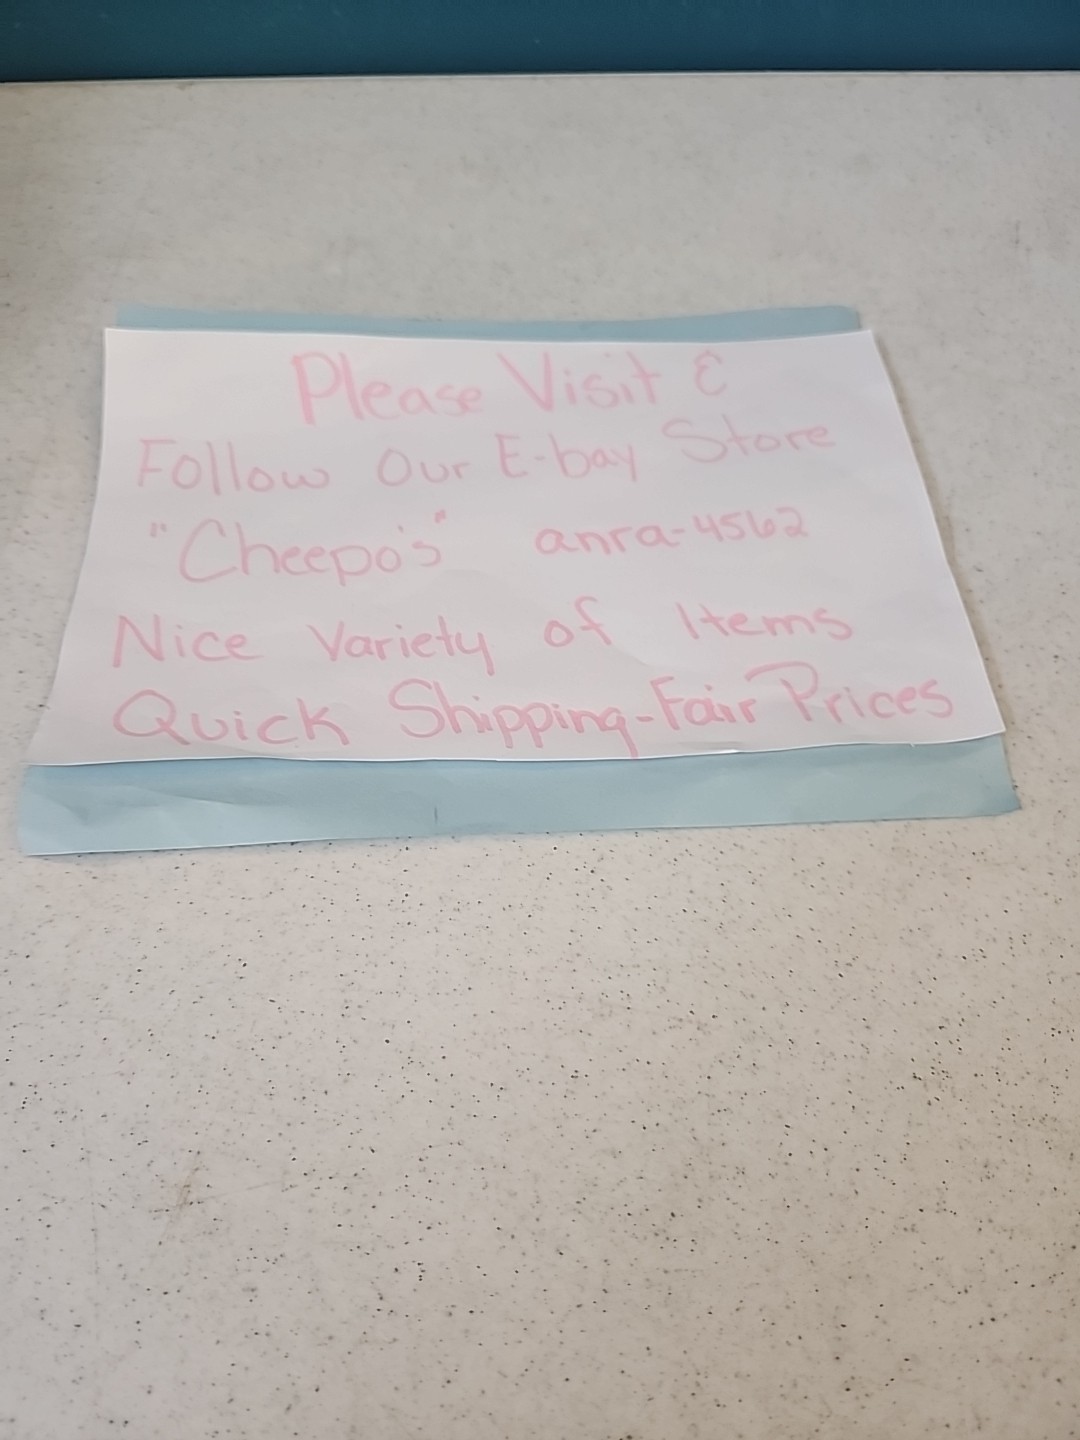 Please Visit &
Follow Our E-bay Store
"Cheepo's" anra-4562
Nice Variety of Items
Quick Shipping-Fair Prices